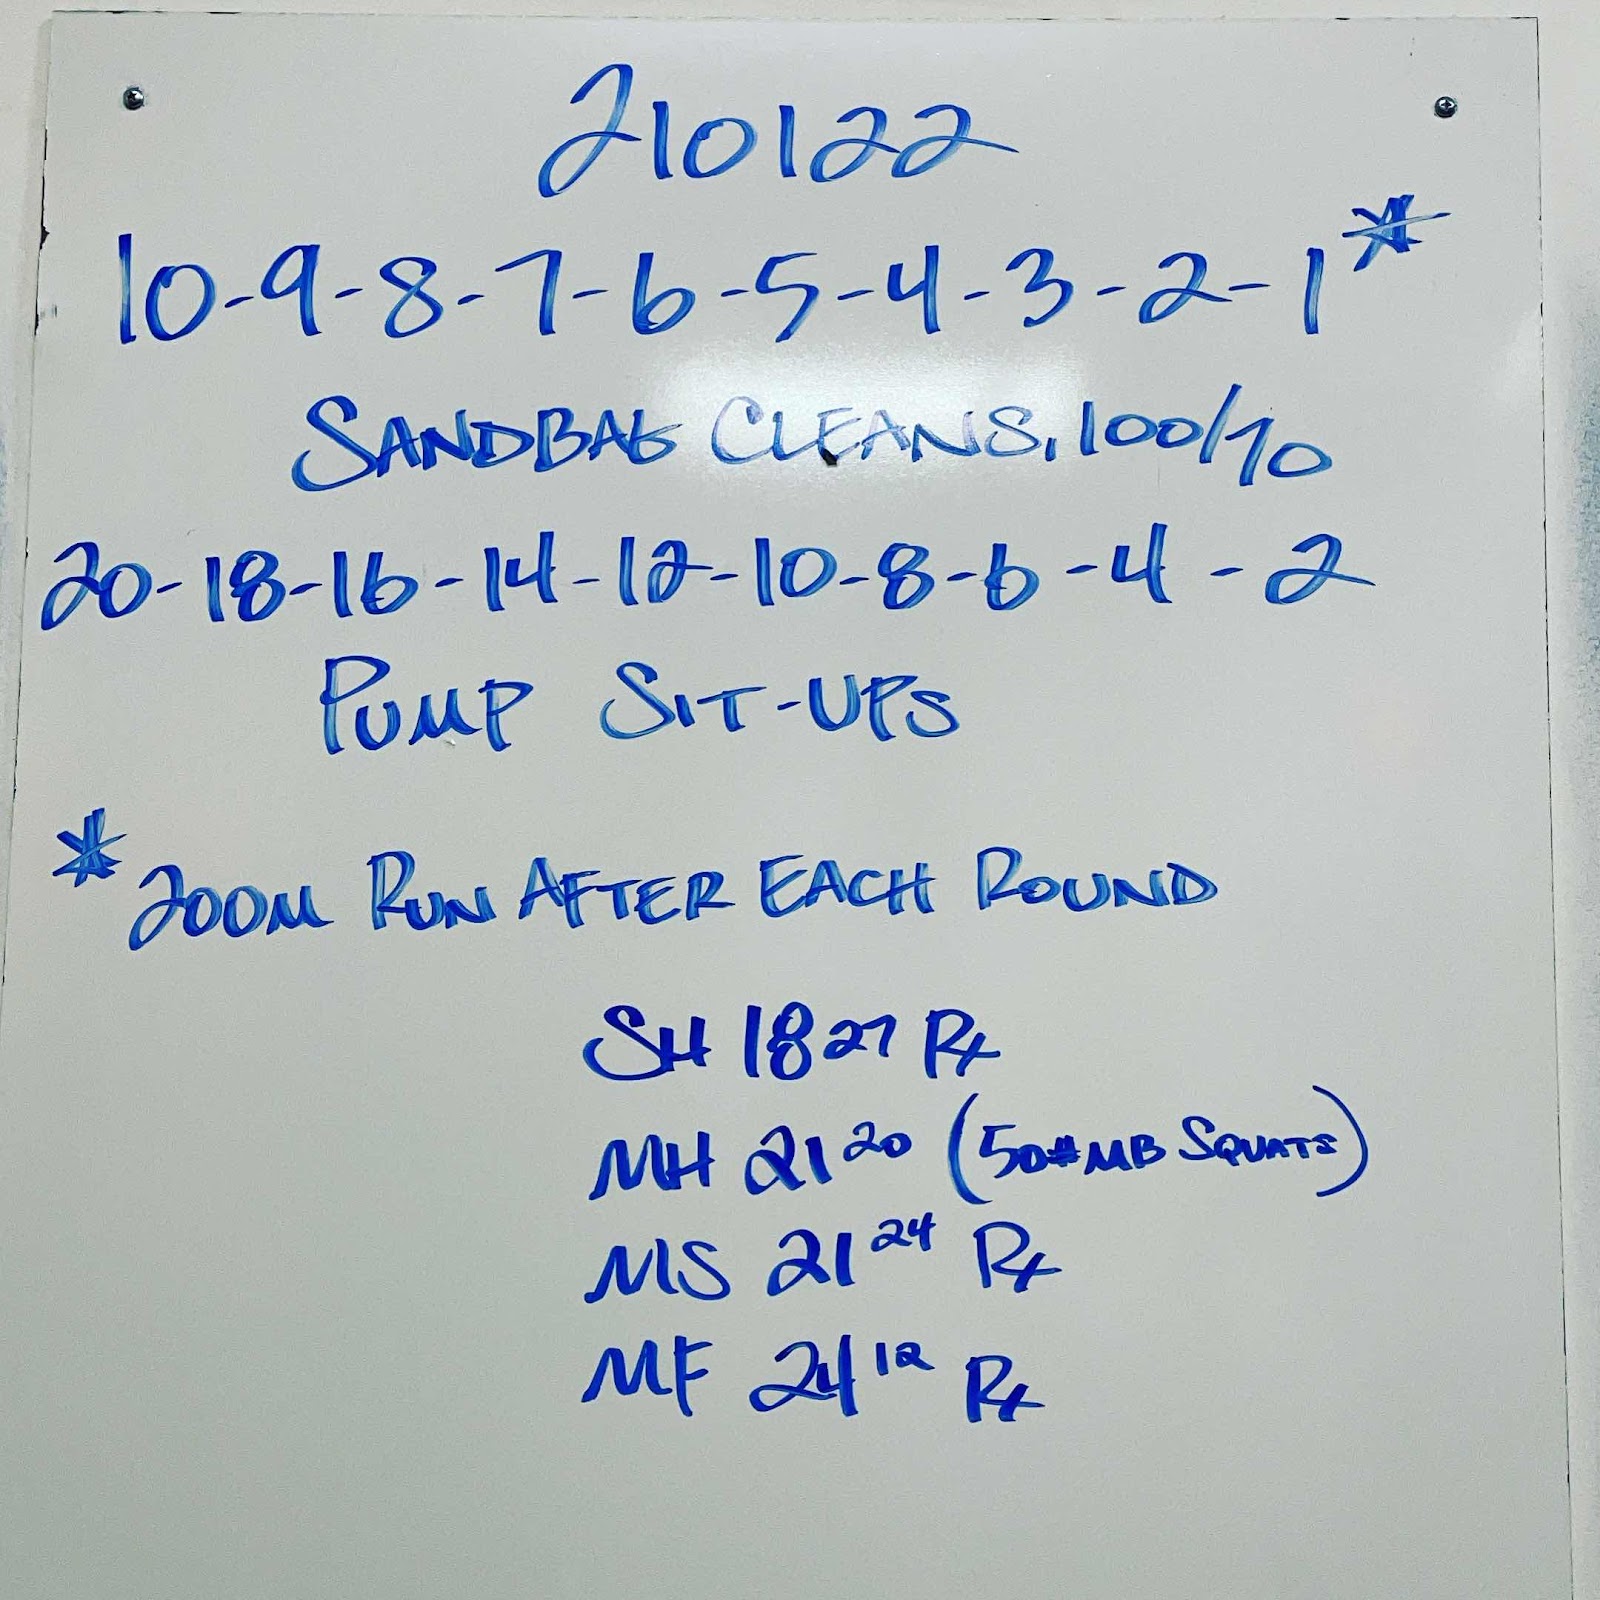 210122
10-9-8-7-6-5-4-3-2-1*
SANDBAG CLEANS, 100/70
20-18-16-14-12-10-8-6-4-2
PUMP SIT-UPS
*200M RUN AFTER EACH ROUND
SH 18 27 Rx
MH 21 20 (50# MB SQUATS)
MS 21 24 Rx
MF 24 12 Rx